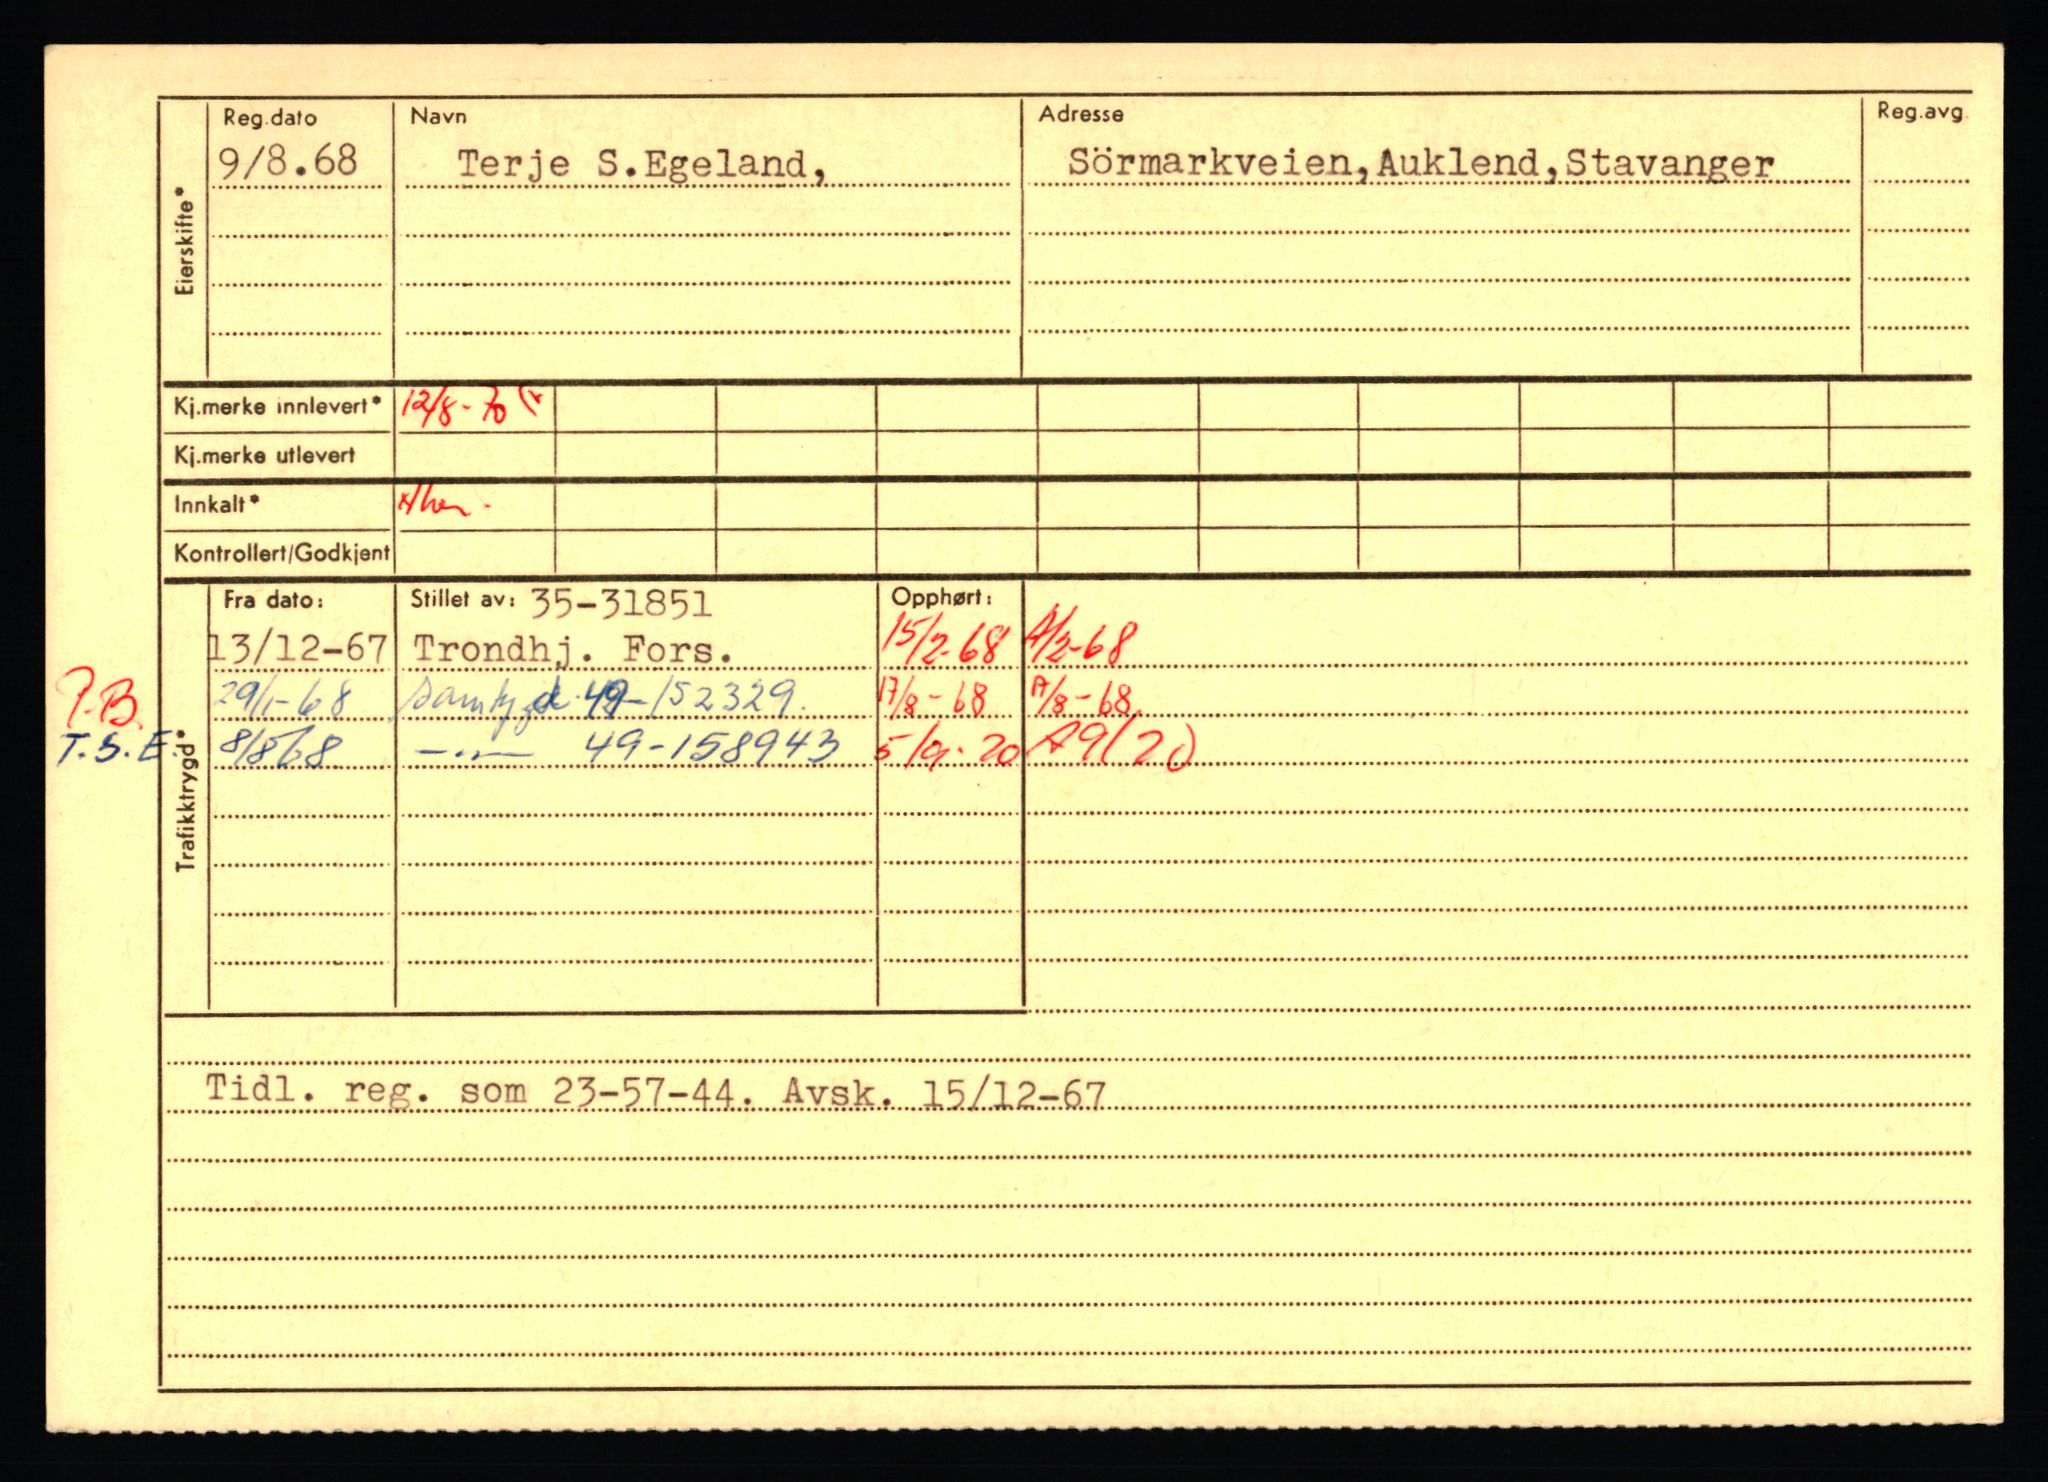 Eierskifte*
Reg.dato Navn Adresse Reg.avg.
9/8.68 Terje S.Egeland, Sörmarkveien,Auklend,Stavanger
Kj.merke innlevert* 12/8-70
Kj.merke utlevert
Innkalt*
Kontrollert/Godkjent
Trafikktrygd*
Fra dato: Stillet av: 35-31851 Opphørt:
13/12-67 Trondhj. Fors. 15/2-68 /2-68
P.B. 29/1-68 Samtygd 49-152329. 17/8-68 /8-68
T.S.E. 8/868 —·— 49-158943 5/9-70
Tidl. reg. som 23-57-44. Avsk. 15/12-67